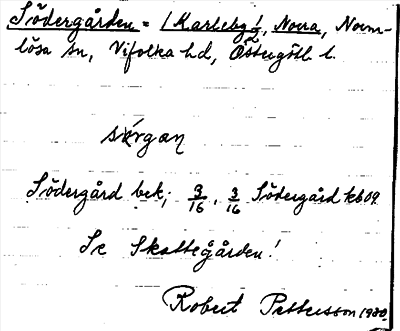 Södergården = / Karleby /, Norra, Norm-
lösa sn, Vifolka hd, Östergötl. l.
Södergård bek; 3/16, 3/16 Södergård kb09
Se Skattegården!
Robert Pettersson 1930.